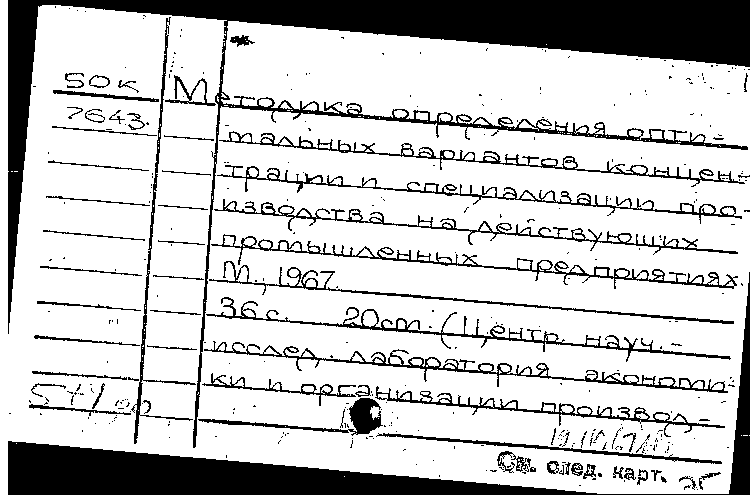 50К Методика определения опти-
7643. мальных вариантов концен-
трации и специализации про-
изводства на действующих
промышленных предприятиях.
М., 1967.
36 с. 20 см. (Центр. науч.-
исслед. лаборатория экономи-
ки и организации производ-
См. след. карт.